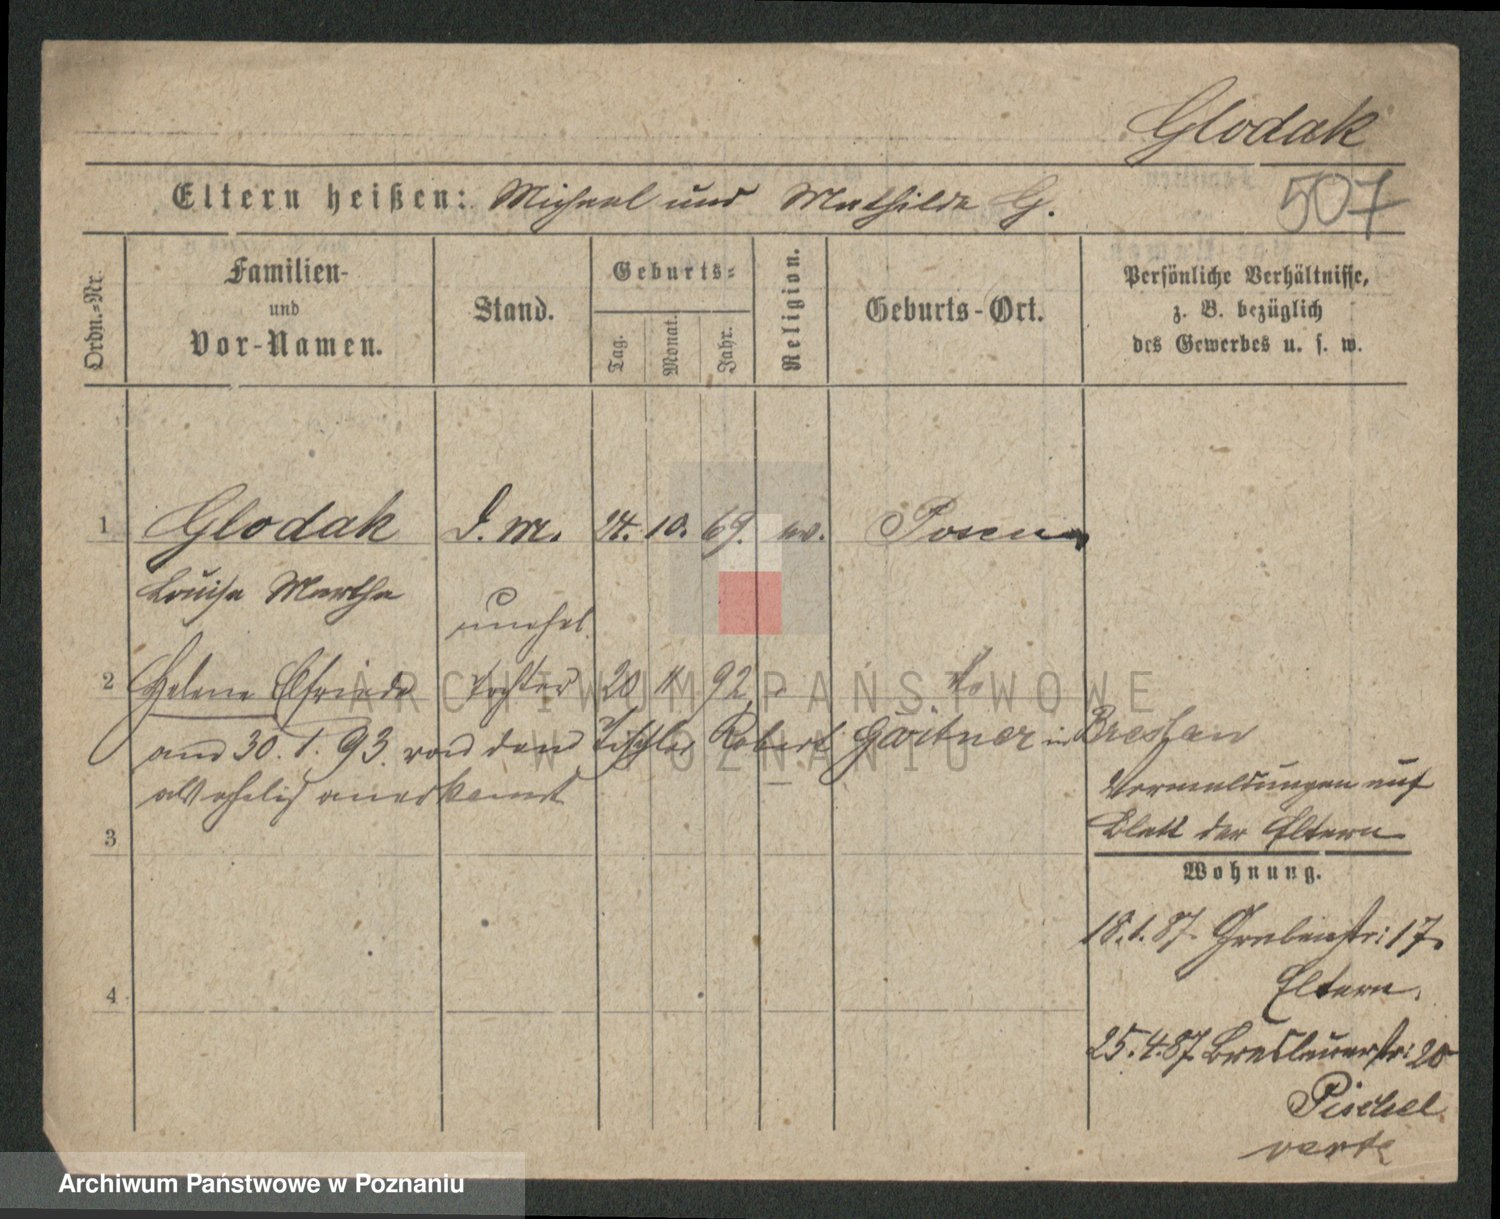 Glodak
507
Eltern heißen: Michael und Mathilde G.
Ordn.-Nr.
Familien-
und
Vor-Namen.
Stand.
Geburts-
Tag.
Monat.
Jahr.
Religion.
Geburts-Ort.
Persönliche Verhältnisse,
z. B. bezüglich
des Gewerbes u. s. w.
1 Glodak D. M. 24. 10. 69. ev. Posen
Louise Martha
unehel.
2 Helene Elfriede Tochter 20 11 92 do
am 30. 1. 93. von dem Tischler Robert Gärtner in Breslau
als ehelich anerkannt
Vermeldungen auf
Blatt der Eltern
3
Wohnung.
18.1.87. Grabenstr: 17.
Eltern.
4
25.4.87. Breslauerstr: 20
Pischel
verte
ARCHIWUM PAŃSTWOWE
W POZNANIU
Archiwum Państwowe w Poznaniu